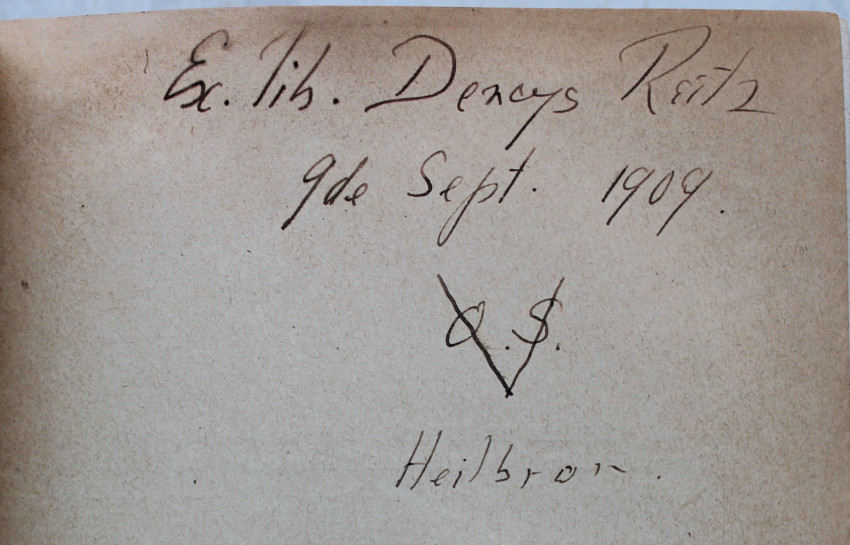 Ex. lib. Deneys Reitz
9de Sept. 1909.
O.V.S.
Heilbron.